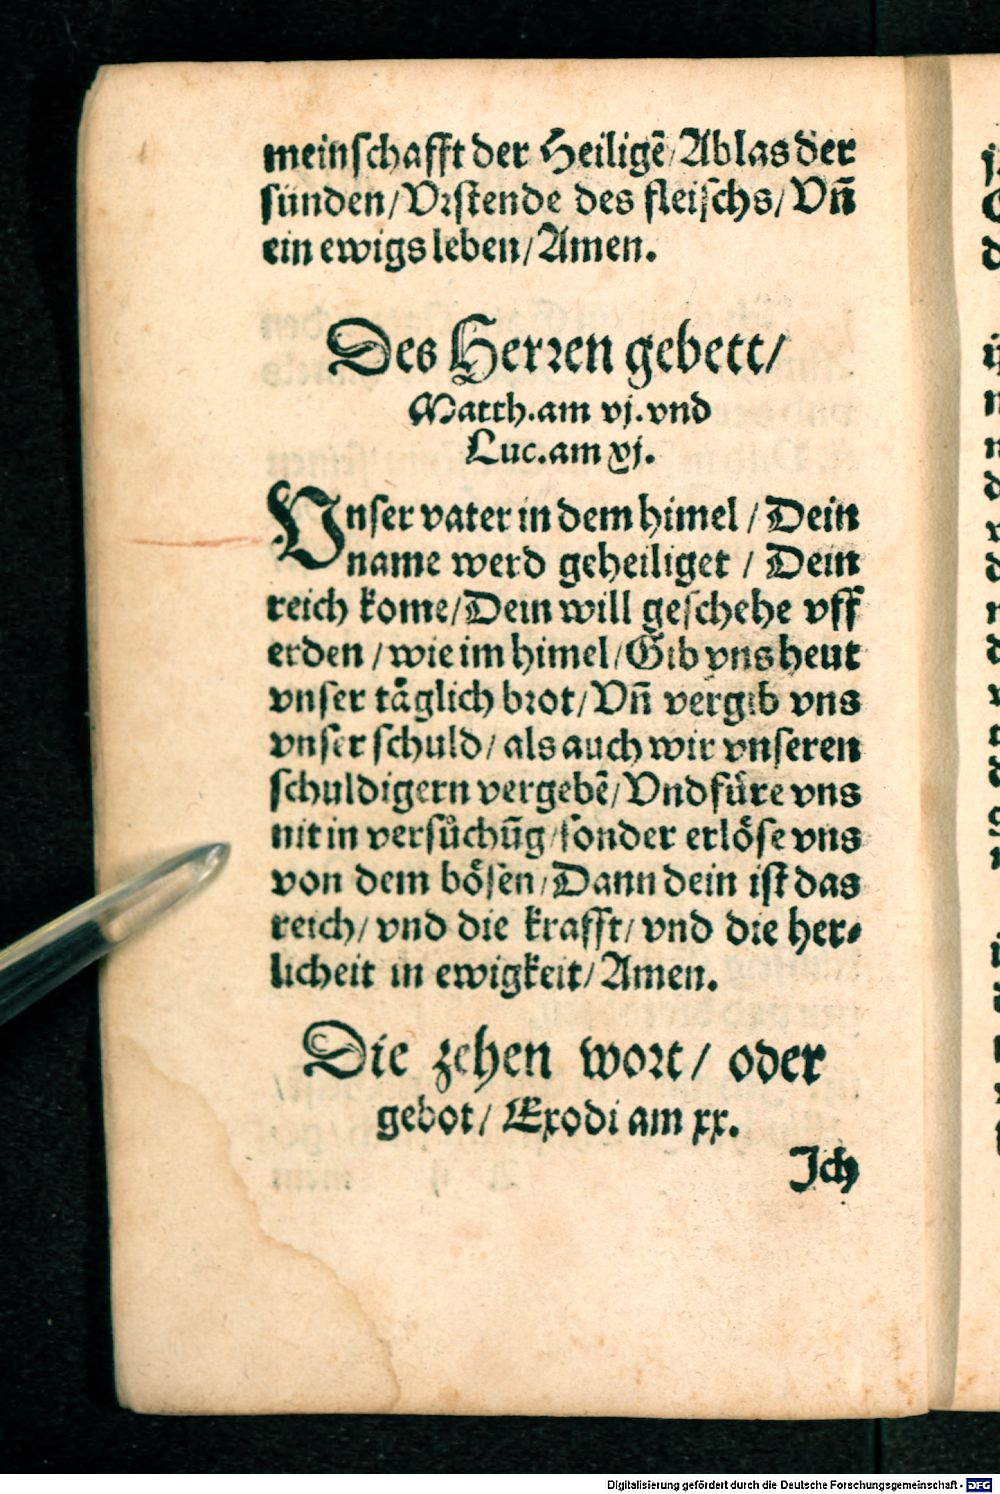 meinſchafft der Heiligẽ/Ablas der
ſünden/Vrſtende des fleiſchs/Vñ
ein ewigs leben/Amen.
Des Herren gebett/
Matth.am vj.vnd
Luc.am xj.
Vnſer vater in dem himel / Dein
name werd geheiliget / Dein
reich kome/Dein will geſchehe vff
erden /wie im himel/Gib vns heut
vnſer taͤglich brot/Vñ vergib vns
vnſer ſchuld/ als auch wir vnſeren
ſchuldigern vergebẽ/Vnd fuͤre vns
nit in verſuͦchũg/ſonder erloͤſe vns
von dem boͤſen/Dann dein iſt das
reich/ vnd die krafft/ vnd die her⸗
licheit in ewigkeit/Amen.
Die zehen wort/ oder
gebot/ Exodi am xx.
Ich
Digitalisierung gefördert durch die Deutsche Forschungsgemeinschaft - DFG